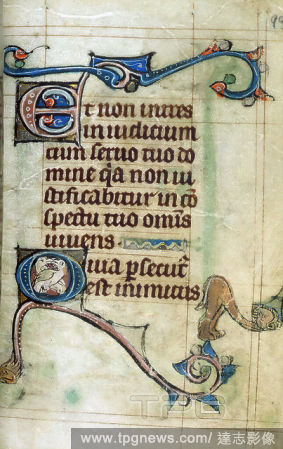 Et non intres
in iudicium
cum seruo tuo do
mine qa non iu
stificabitur in co
spectu tuo omis
uiuens
Quia psecut
est inimicus
TPG
www.tpgnews.com/ 達志影像